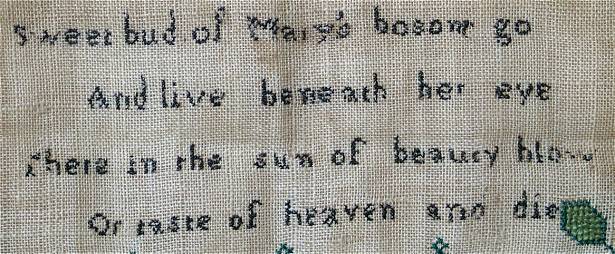 Sweet bud of Mary's bosom go
And live beneath her eye
There in the sun of beauty blow
Or taste of heaven and die